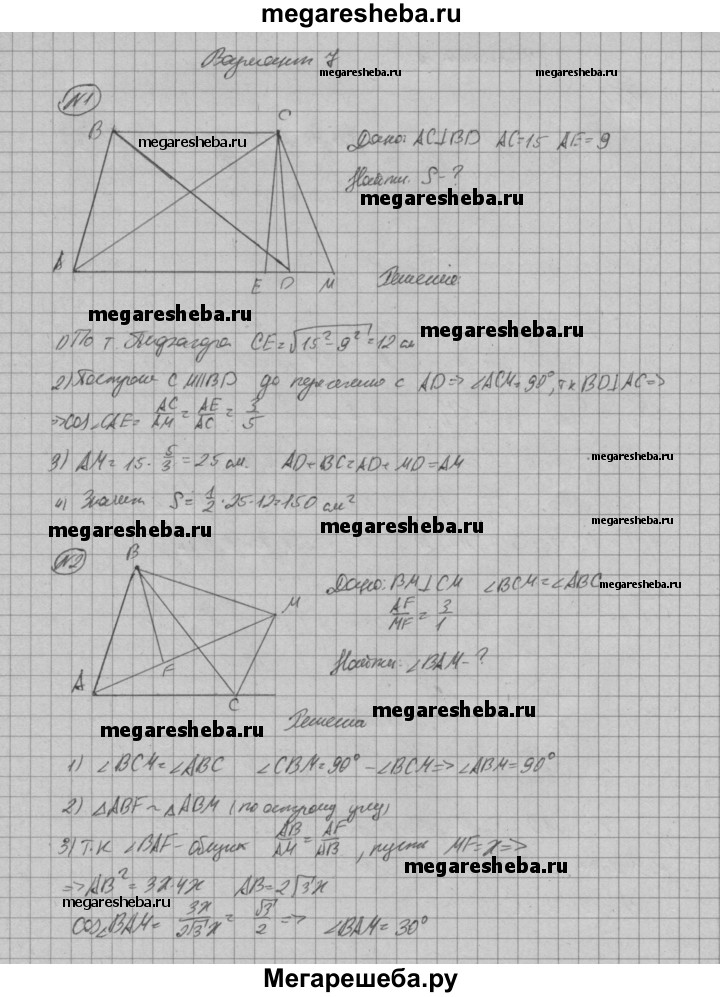 megaresheba.ru
Вариант 7
megaresheba.ru
megaresheba.ru
№1
B
C
megaresheba.ru
Дано: AC⊥BD AC=15 AE=9
Найти: S-?
megaresheba.ru
A
E D M
Решение:
megaresheba.ru
1) По т. Пифагора CE=√15²-9²=12 см
megaresheba.ru
2) Построим CM||BD до пересечения с AD=> ∠ACM=90°, т.к BD⊥AC=>
=>cos∠CAE= AC/AM = AE/AC = 3/5
3) AM=15·5/3=25 см. AD+BC=AD+MD=AM
4) Значит S=1/2·25·12=150 см²
megaresheba.ru
megaresheba.ru
megaresheba.ru
№2
B
Дано: BM⊥CM ∠BCM=∠ABC
megaresheba.ru
AF/MF = 3/1
M
F
Найти: ∠BAM-?
A
C
megaresheba.ru
megaresheba.ru
Решение
1) ∠BCM=∠ABC ∠CBM=90°-∠BCM=>∠ABM=90°
2) △ABF~△ABM (по острому углу)
3) Т.к ∠BAF-общий AB/AM = AF/AB, пусть MF=x=>
megaresheba.ru
=>AB²=3x·4x AB=2√3x
megaresheba.ru
cos∠BAM= 3x/2√3x = √3/2 => ∠BAM=30°
megaresheba.ru
Мегарешеба.ру